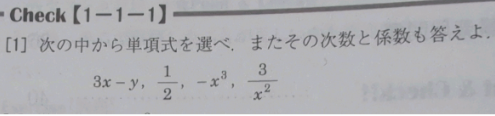 Check【1－1－1】
[1] 次の中から単項式を選べ．またその次数と係数も答えよ．
3x－y, 1/2, －x³, 3/x²